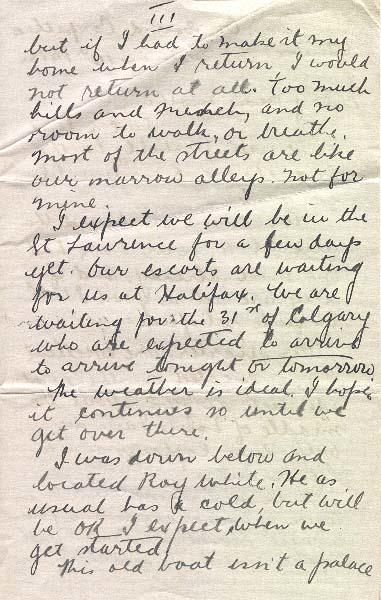 III
but if I had to make it my
home when I return I would
not return at all. too much
hills and and no
room to walk, or breathe.
most of the streets are like
our marrow alleys. not for
mine.
I expect we will be in the
St Lawrence for a few days
yet. Our escorts are waiting
for us at Halifax. We are
waiting for the 31st of Calgary
who are expected to arrive
to arrive tonight or tomorrow
The weather is ideal. I hope
it continues so until we
get over there.
I was down below and
located Roy White. He as
usual has a cold, but will
be OK I expect, when we
get started.
This old boat isn't a palace